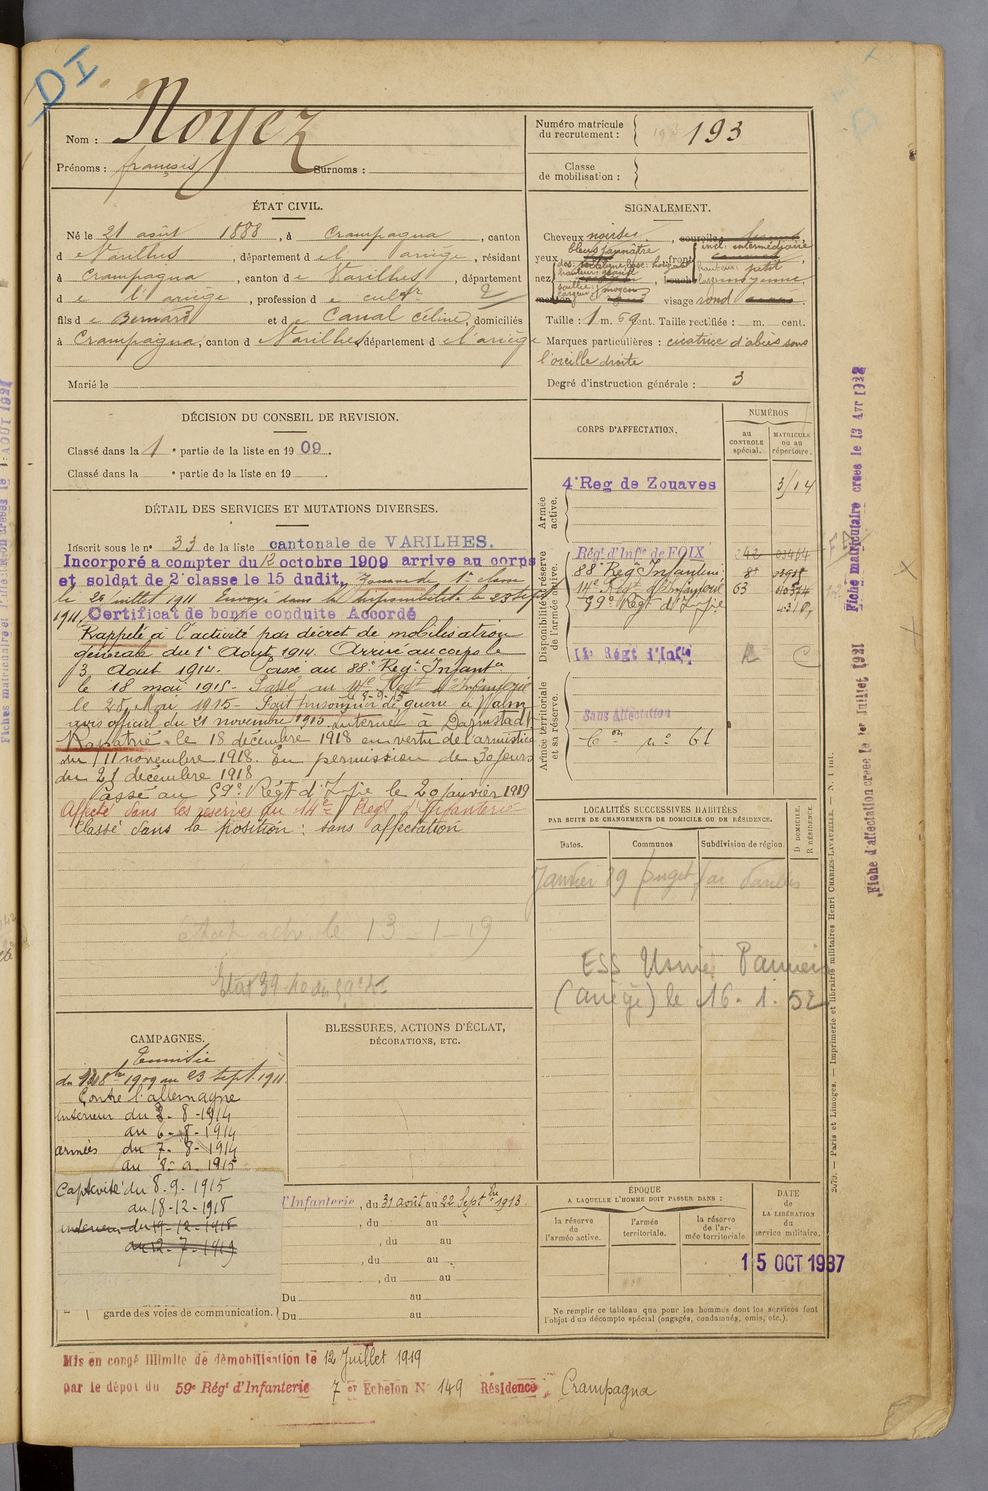 DI
Nom : Noyez
Prénoms : françois Surnoms :
Numéro matricule du recrutement : 193
Classe de mobilisation :
ÉTAT CIVIL.
Né le 21 août 1888, à Crampagna, canton
d e Varilhes, département d e l' ariège, résidant
à Crampagna, canton d e Varilhes, département
d e l' ariège, profession d e cultr 2
fils d e Bernard et d e Canal Céline, domiciliés
à Crampagna, canton d e Varilhes département d e l'ariège
Marié le
SIGNALEMENT.
Cheveux noirs, sourcils
yeux bleus jaunâtre, front incl. intermédiaire
nez, hauteur: petit
visage rond
Taille : 1 m. 69 cent. Taille rectifiée : m. cent.
Marques particulières : cicatrice d'abcès sous
l'oreille droite
Degré d'instruction générale : 3
DÉCISION DU CONSEIL DE REVISION.
Classé dans la 1e partie de la liste en 1909.
Classé dans la e partie de la liste en 19
CORPS D'AFFECTATION.
NUMÉROS
au CONTROLE spécial.
MATRICULE ou au répertoire.
Armée active.
4e Reg de Zouaves
Disponibilité et réserve de l'armée active.
Régt d'Infie de FOIX
88e Reg Infanterie
14e Régt d'Infanterie 63
59e Régt d'Infie
14e Régt d'Infie
Armée territoriale et sa réserve.
Sans Affectation
Con no 61
DÉTAIL DES SERVICES ET MUTATIONS DIVERSES.
Inscrit sous le no 33 de la liste cantonale de VARILHES.
Incorporé a compter du 12 octobre 1909 arrive au corps
et soldat de 2e classe le 15 dudit,
le 22 juillet 1911. Envoyé dans la disponibilité le 23 sept
1911, Certificat de bonne conduite Accordé
Rappelé à l'activité par décret de mobilisation
générale du 1er Août 1914. Arrivé au corps le
3 Aout 1914. Passé au 88e Regt Infantie
le 18 mai 1915 - Passé au 14e Régt d'Infanterie
le 28 Mai 1915 - Fait prisonnier de guerre
8-9-15
avis officiel du 21 novembre 1915 interné à Darmstadt
Rapatrié le 18 décembre 1918 en vertu de l'armistice
du 11 novembre 1918. En permission de 30 jours
du 21 décembre 1918
Passé au 59e Régt d'Infie le 20 janvier 1919
Affecté dans les réserves du 14e Régt d'Infanterie
Classé dans la position : sans affectation
LOCALITÉS SUCCESSIVES HABITÉES
PAR SUITE DE CHANGEMENTS DE DOMICILE OU DE RÉSIDENCE.
Dates. Communes Subdivision de région.
D DOMICILE. R RÉSIDENCE.
Janvier 39
ESS Usine Pamiers
(ariège) le 16. 1. 52
CAMPAGNES.
Tunisie
1909 au 23 sept. 1911
Contre l'allemagne
intérieur du 3-8-1914
au 6-8-1914
armées du 7-8-1914
au 8-9-1915
Captivité du 8-9-1915
au 18-12-1918
intérieur du 19-12-1918
au 12-7-1919
BLESSURES, ACTIONS D'ÉCLAT,
DÉCORATIONS, ETC.
l'Infanterie, du 31 août au 22 Septbre 1913.
, du au
, du au
, du au
, du au
Du au
garde des voies de communication. Du au
ÉPOQUE
A LAQUELLE L'HOMME DOIT PASSER DANS :
la réserve de l'armée active.
l'armée territoriale.
la réserve de l'armée territoriale.
DATE de LA LIBÉRATION du service militaire.
15 OCT 1937
Ne remplir ce tableau que pour les hommes dont les services font
l'objet d'un décompte spécial (engagés, condamnés, omis, etc.).
Mis en congé illimité de démobilisation le 12 Juillet 1919
par le dépot du 59e Régt d'Infanterie 7 er Echelon No 149 Résidence : Crampagna
Fiche matriculaire créée le 13 Avr 1928
Fiche d'affectation créée le 1er Juillet 1921
Paris et Limoges. — Imprimerie et librairie militaires Henri CHARLES-LAVAUZELLE.